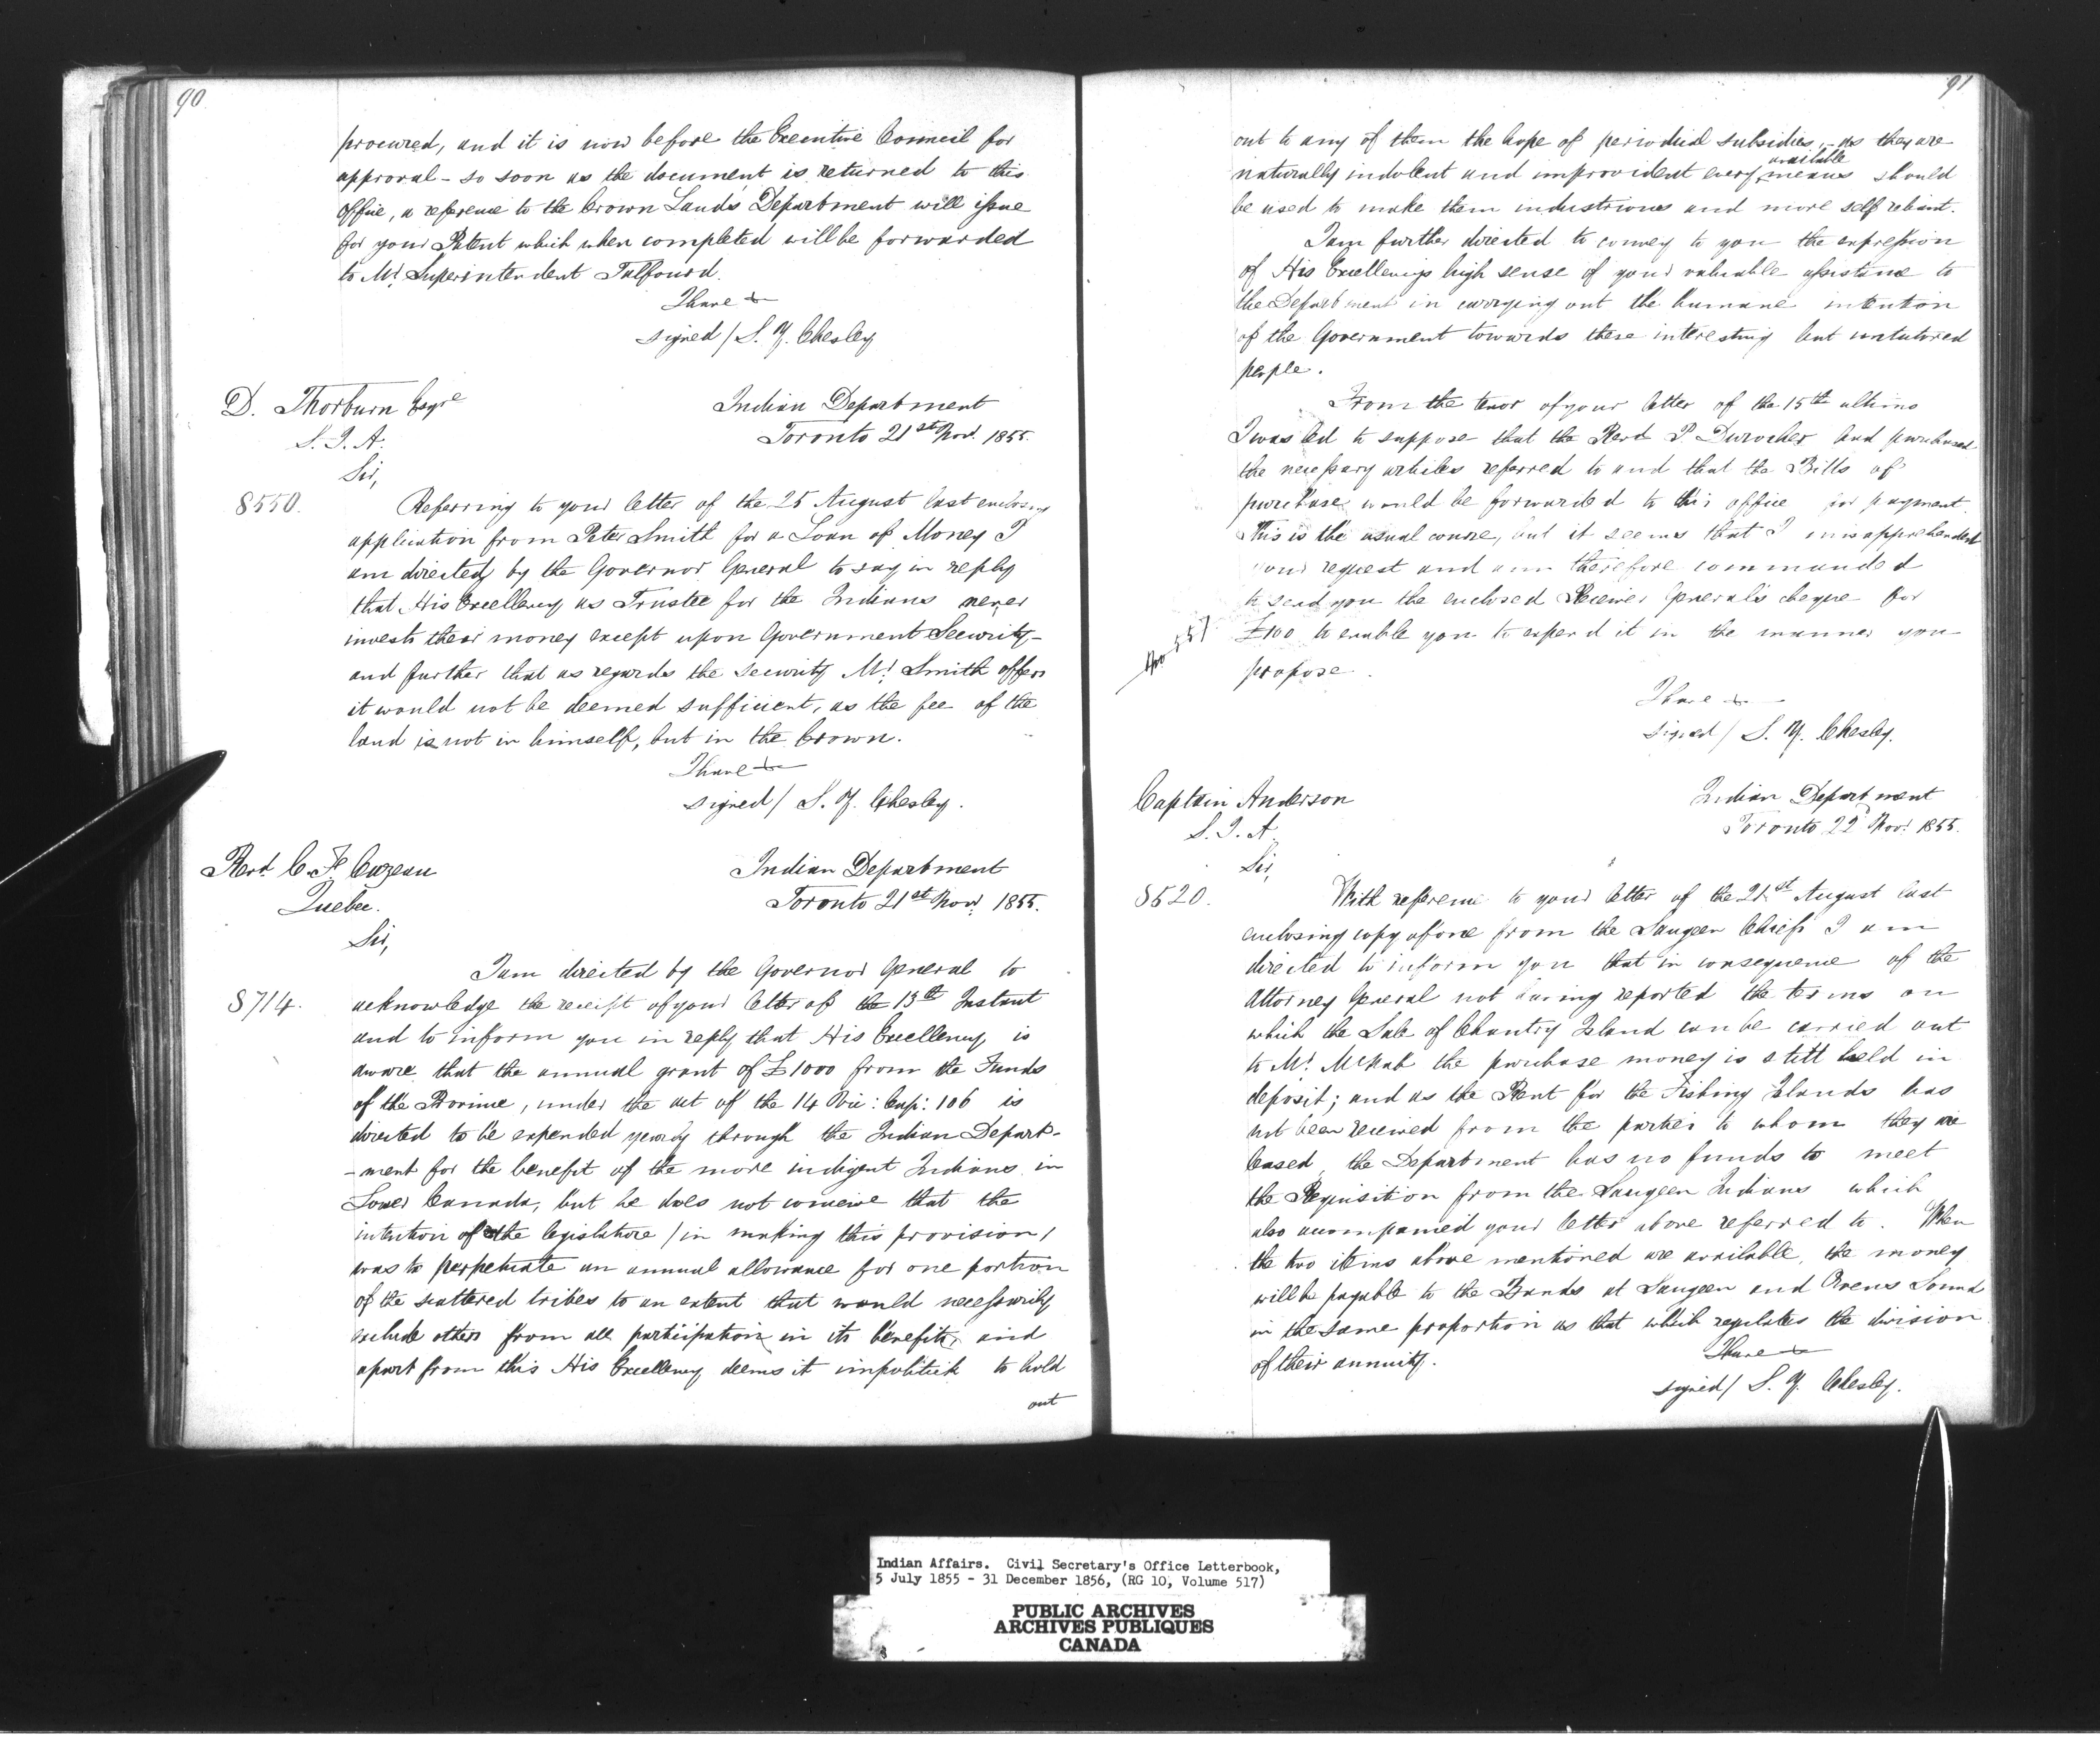 90
procured, and it is now before the Executive Council for
approval - so soon as the document is returned to this
office, a reference to the Crown Lands Department will issue
for your Patent which when completed will be forwarded
to Mr. Superintendent Talfourd.
I have &c
signed / S. Y. Chesley
D. Thorburn Esqre
S. I. A.
Indian Department
Toronto 21st Nov. 1855.
Sir,
8550. Referring to your letter of the 25 August last enclosing
application from Peter Smith for a Loan of Money I
am directed by the Governor General to say in reply
that His Excellency as Trustee for the Indians never
invests their money except upon Government Security -
and further that as regards the security Mr. Smith offers
it would not be deemed sufficient, as the fee of the
land is not in himself, but in the Crown.
I have &c
signed / S. Y. Chesley.
Revd. C. F. Cazeau
Quebec.
Indian Department
Toronto 21st Nov. 1855.
Sir,
I am directed by the Governor General to
8714. acknowledge the receipt of your letter of the 13th Instant
and to inform you in reply that His Excellency is
aware that the annual grant of £1000 from the Funds
of the Province, under the act of the 14 Vic: Cap: 106 is
directed to be expended yearly through the Indian Depart-
-ment for the benefit of the more indigent Indians in
Lower Canada, but he does not conceive that the
intention of the legislature / in making this provision /
was to perpetuate an annual allowance for one portion
of the scattered tribes to an extent that would necessarily
exclude others from all participation in its benefits, and
apart from this His Excellency deems it impolitick to hold
out
91
out to any of them the hope of periodical subsidies, - as they are
naturally indolent and improvident every available means should
be used to make them industrious and more self reliant.
I am further directed to convey to you the expression
of His Excellency's high sense of your valuable assistance to
the Department in carrying out the humane intention
of the Government towards these interesting but untutored
people.
From the tenor of your letter of the 15th ultimo
I was led to suppose that the Revd P Durocher had purchased
the necessary articles referred to and that the Bills of
purchase would be forwarded to this office for payment.
This is the usual course, but it seems that I misapprehended
your request and am therefore commanded
to send you the enclosed Receiver General's cheque for
No 557 £100 to enable you to expend it in the manner you
propose.
I have &c
signed / S. Y. Chesley.
Captain Anderson
S. I. A.
Indian Department
Toronto 22 Nov. 1855.
Sir,
8520. With reference to your letter of the 21st August last
enclosing copy of one from the Saugeen Chiefs I am
directed to inform you that in consequence of the
Attorney General not having reported the terms on
which the Sale of Chantry Island can be carried out
to Mr. McNab the purchase money is still held in
deposit; and as the Rent for the Fishing Islands has
not been received from the parties to whom they are
leased, the Department has no funds to meet
the Requisition from the Saugeen Indians which
also accompanied your letter above referred to. When
the two items above mentioned are available, the money
will be payable to the Bands at Saugeen and Owens Sound
in the same proportion as that which regulates the division
of their annuity.
I have &c
signed / S. Y. Chesley.
Indian Affairs. Civil Secretary's Office Letterbook,
5 July 1855 - 31 December 1856, (RG 10, Volume 517)
PUBLIC ARCHIVES
ARCHIVES PUBLIQUES
CANADA